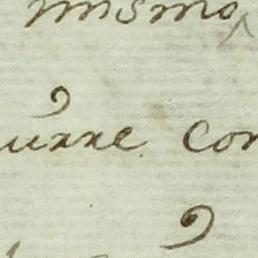 mismo
urre con